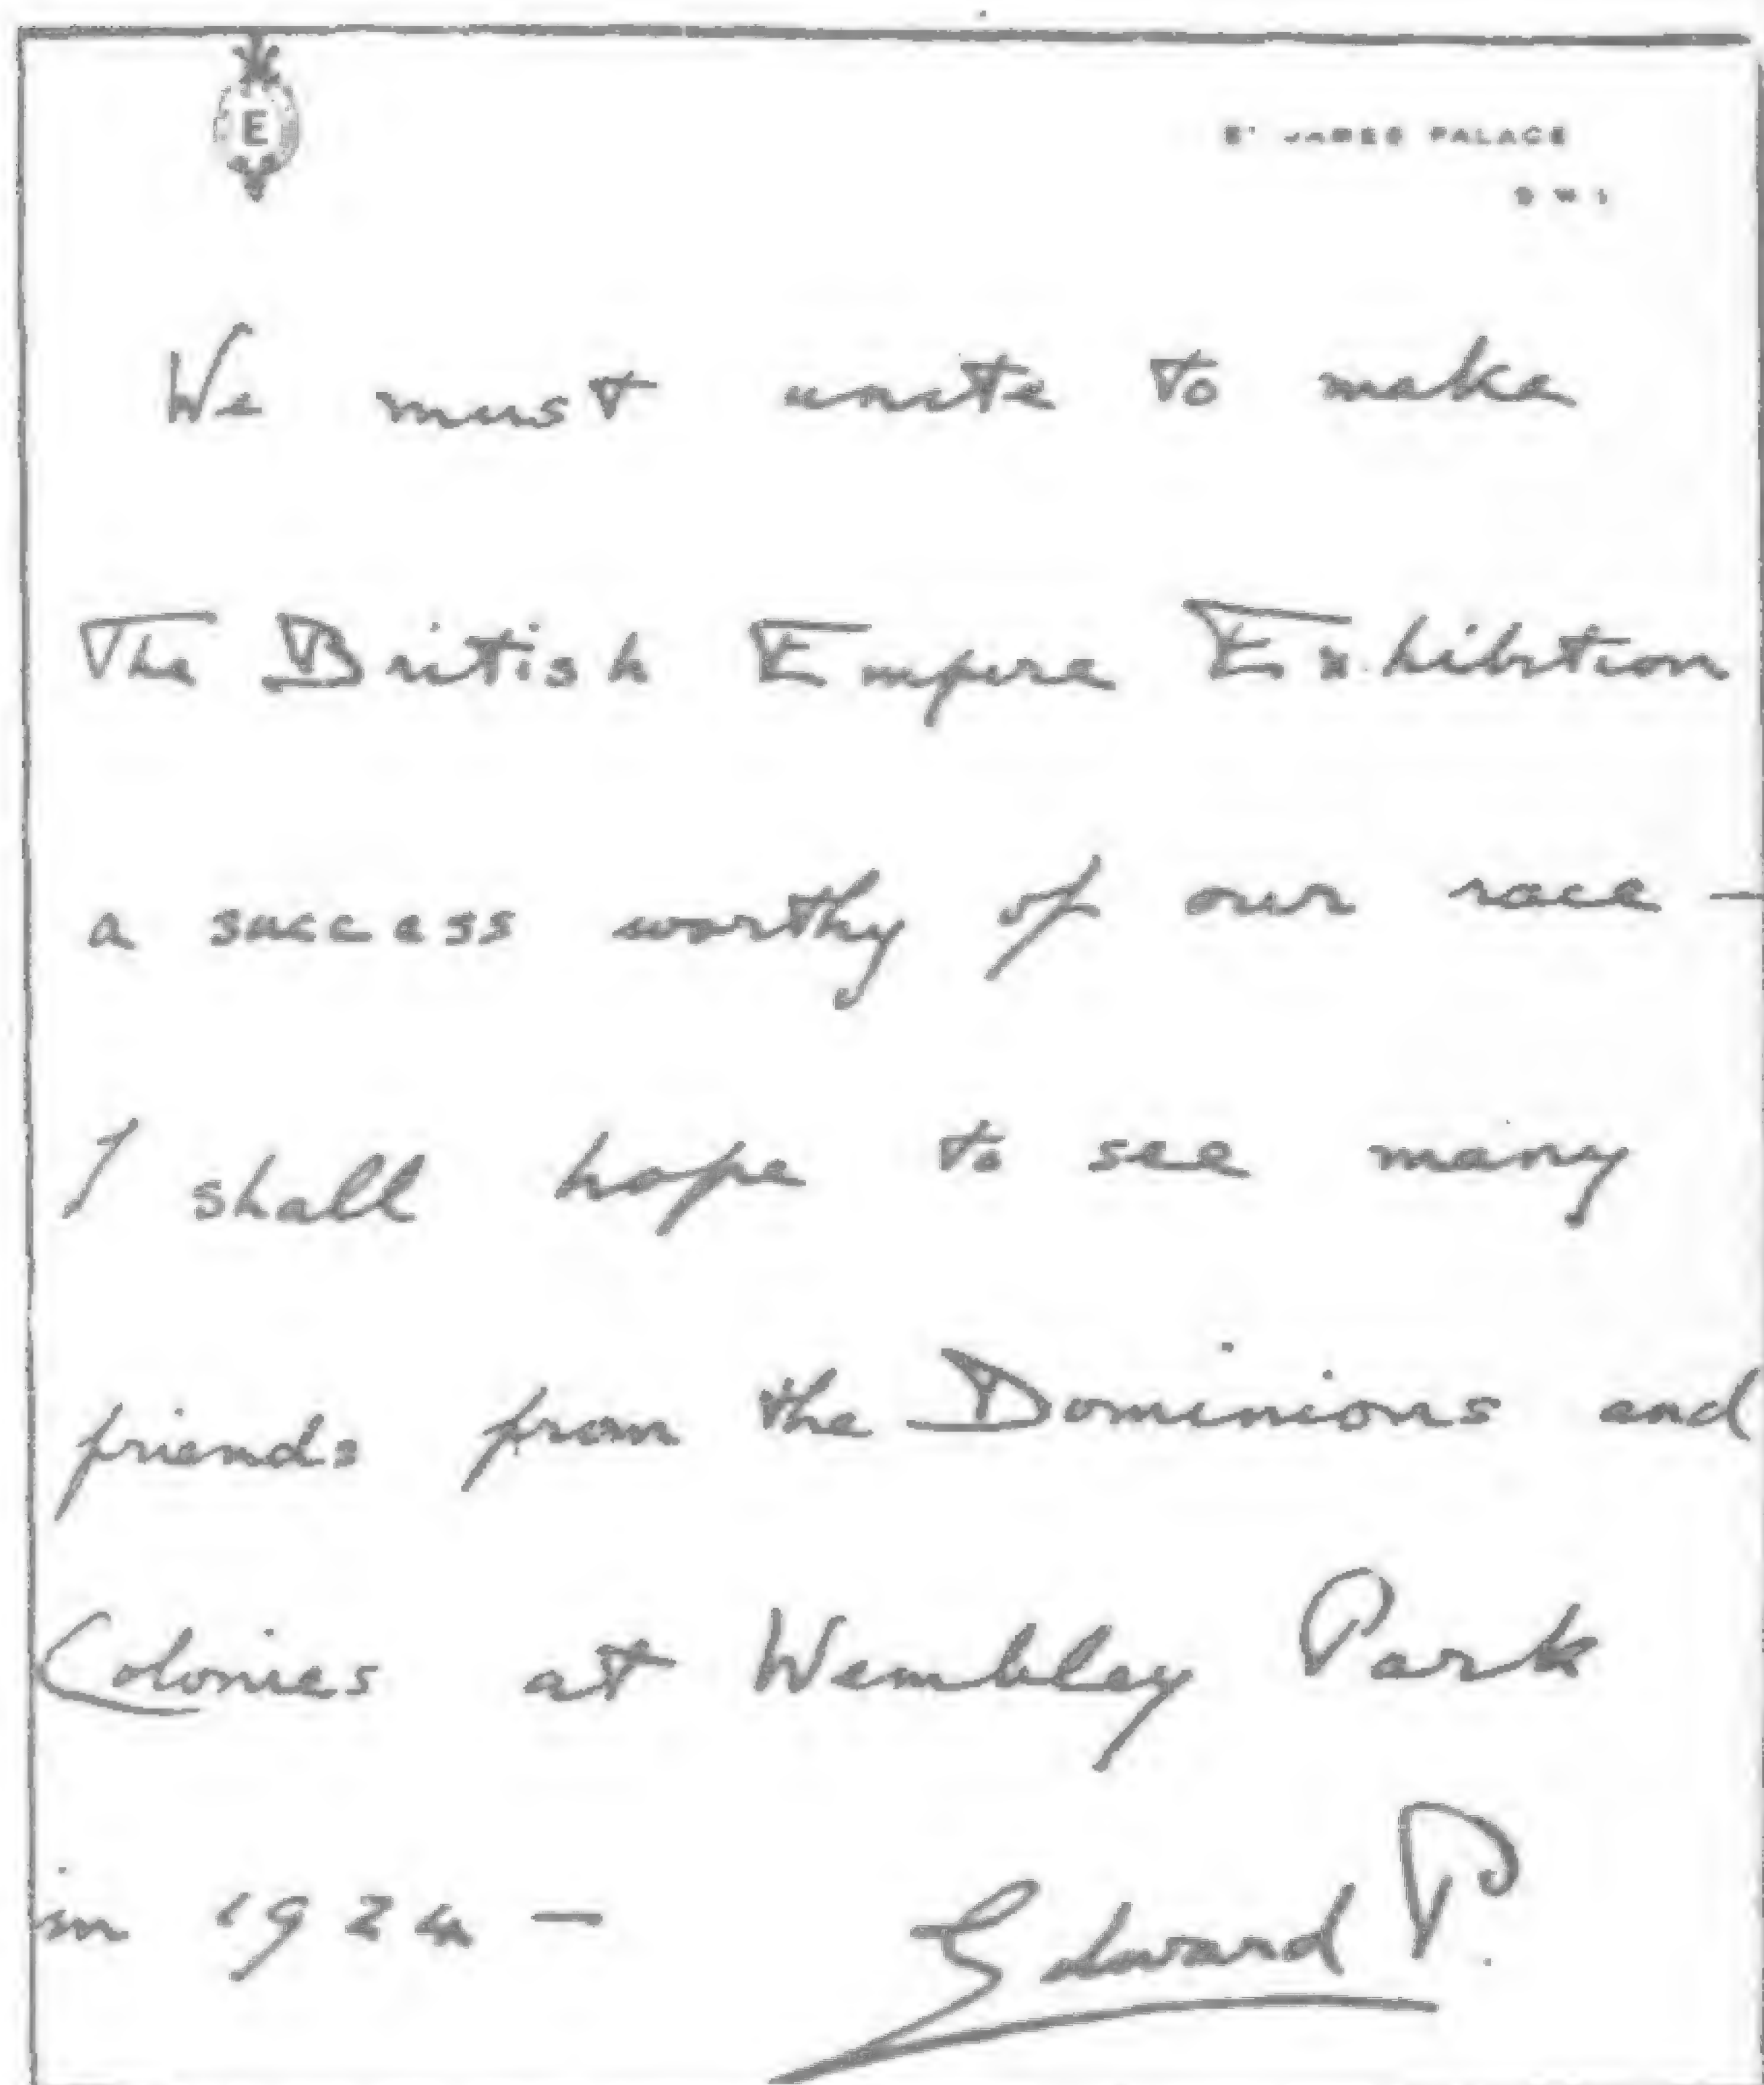 E
ST JAMES PALACE
S W 1
We must unite to make
The British Empire Exhibition
a success worthy of our race —
I shall hope to see many
friends from the Dominions and
Colonies at Wembley Park
in 1924 —
Edward P.